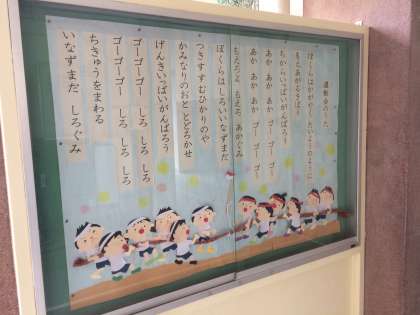 運動会のうた
ぼくらはかがやくたいようのように
もえあがるきぼう
ちからいっぱいがんばろう
あか あか あか ゴー ゴー ゴー
あか あか あか ゴー ゴー ゴー
もえろよ もえろ あかぐみ
ぼくらはしろいいなずまだ
つきすすむひかりのや
かみなりのおと とどろかせ
げんきいっぱいがんばろう
ゴーゴーゴー しろ しろ しろ
ゴーゴーゴー しろ しろ しろ
ちきゅうをまわる
いなずまだ しろぐみ